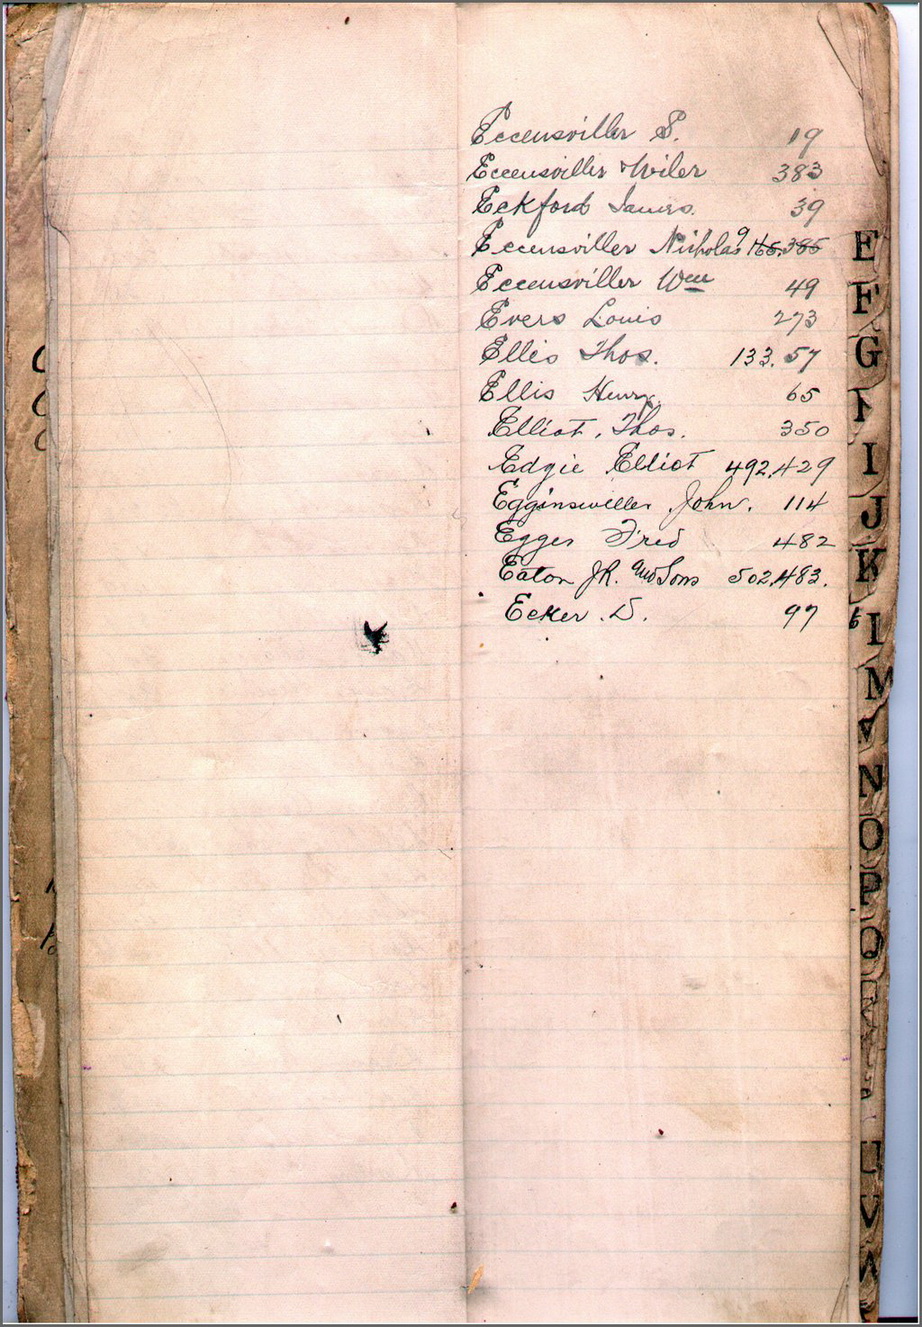 Eccensviller S. 19
Eccensviller & Wiler 383
Eckford James. 39
Eccensviller Nicholas 9 165. 385
Eccensviller Wm 49
Evers Louis 273
Ellis Thos. 133. 57
Ellis Henry. 65
Elliot, Thos. 350
Edgie Elliot 492,429
Egginswiller John. 114
Egger Fred 482
Eaton JR. and Sons 502,483.
Ecker. D. 97
E
F
G
I
J
K
L
M
N
O
P
Q
V
W